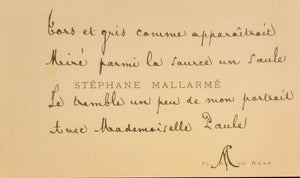 Tors et gris comme apparaîtrait
Miré parmi la source un saule
STÉPHANE MALLARMÉ
Je tremble un peu de mon portrait
Avec Mademoiselle Paule
SM
DE ROME